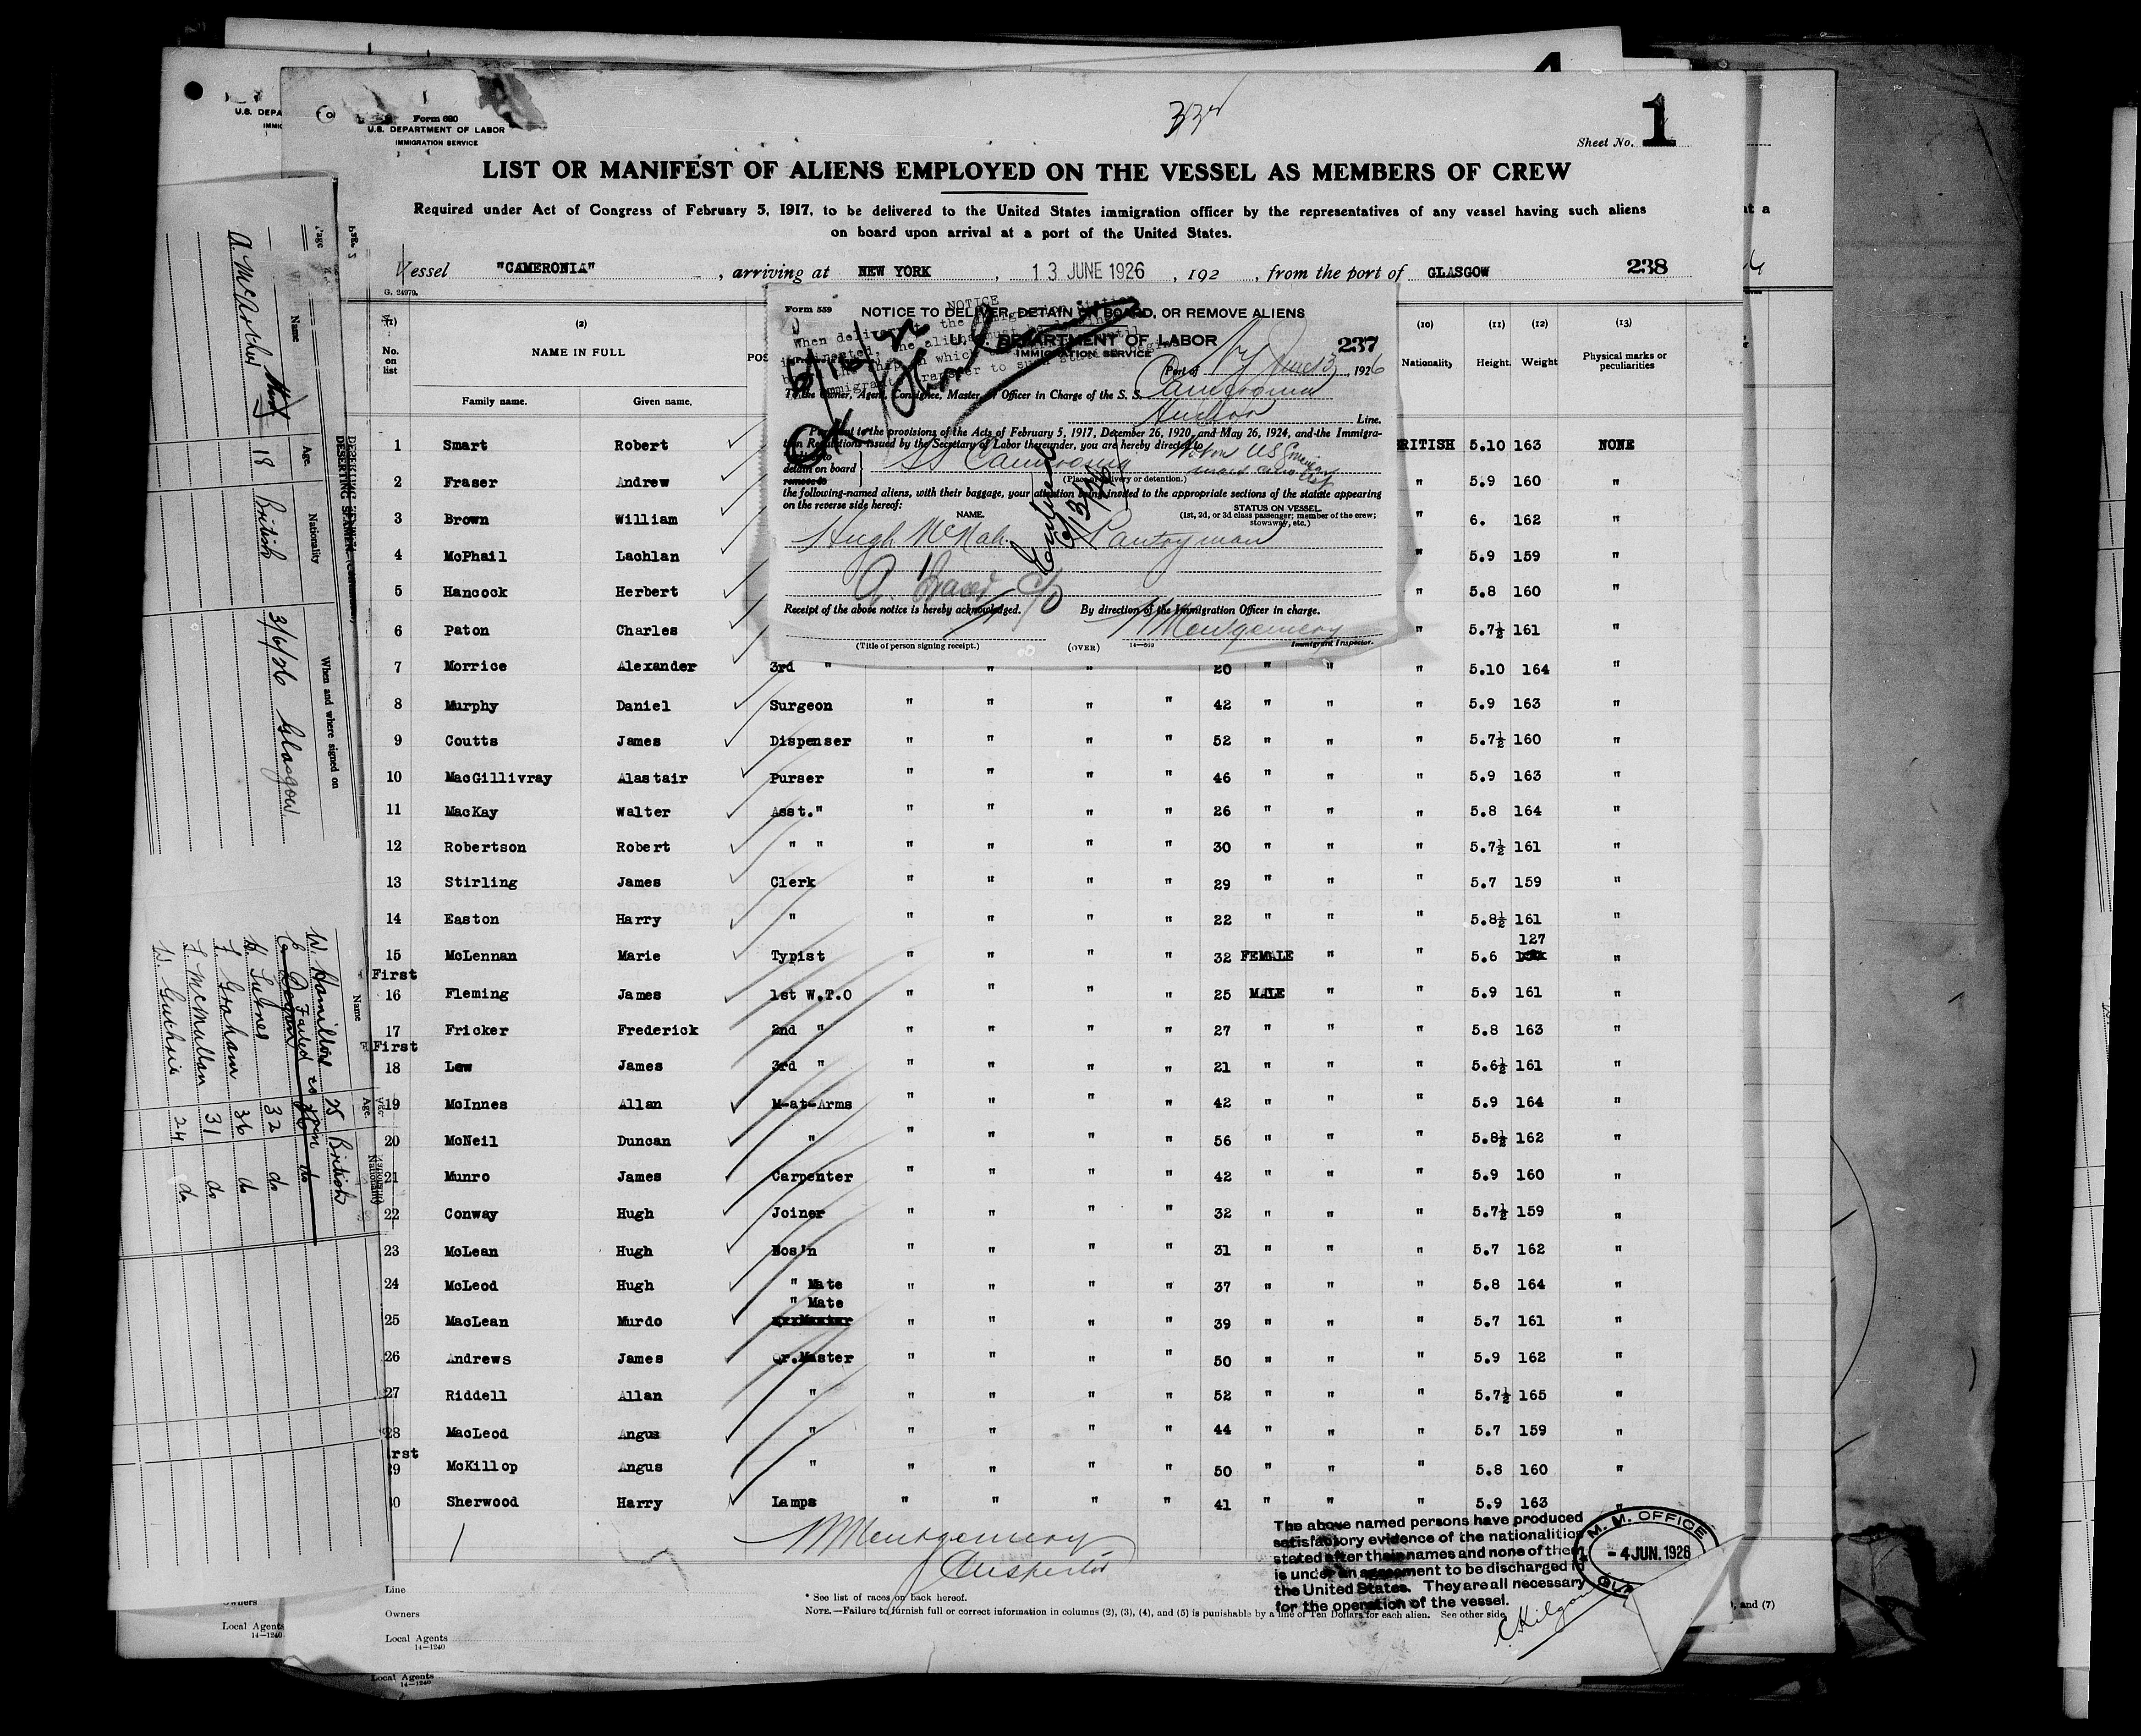 Form 680
U.S. DEPARTMENT OF LABOR
IMMIGRATION SERVICE
Sheet No. 1
LIST OR MANIFEST OF ALIENS EMPLOYED ON THE VESSEL AS MEMBERS OF CREW
Required under Act of Congress of February 5, 1917, to be delivered to the United States immigration officer by the representatives of any vessel having such aliens
on board upon arrival at a port of the United States.
Vessel "CAMERONIA", arriving at NEW YORK, 13 JUNE 1926, 192, from the port of GLASGOW 238
G. 24979.
(1) (2) (10) (11) (12) (13)
No. on list NAME IN FULL Nationality Height. Weight Physical marks or peculiarities
Family name. Given name.
Form 559 NOTICE TO DELIVER, DETAIN ON BOARD, OR REMOVE ALIENS
U. S. DEPARTMENT OF LABOR
IMMIGRATION SERVICE
237
Port of NY June 13, 1926
To the Owner, Agent, Consignee, Master, or Officer in Charge of the S. S. Cameronia
Anchor Line.
Pursuant to the provisions of the Acts of February 5, 1917, December 26, 1920, and May 26, 1924, and the Immigra-
tion Regulations issued by the Secretary of Labor thereunder, you are hereby directed to
detain on board SS Cameronia
remove to (Place of delivery or detention.)
the following-named aliens, with their baggage, your attention being invited to the appropriate sections of the statute appearing
on the reverse side hereof:
NAME. STATUS ON VESSEL
(1st, 2d, or 3d class passenger; member of the crew; stowaway, etc.)
Hugh McNab Pantryman
Receipt of the above notice is hereby acknowledged. By direction of the Immigration Officer in charge.
Montgomery
(Title of person signing receipt.) (OVER) Immigrant Inspector.
1 Smart Robert BRITISH 5.10 163 NONE
2 Fraser Andrew " 5.9 160 "
3 Brown William " 6. 162 "
4 McPhail Lachlan " 5.9 159 "
5 Hancock Herbert " 5.8 160 "
6 Paton Charles " 5.7½ 161 "
7 Morrice Alexander 3rd " " " " 20 " " " 5.10 164 "
8 Murphy Daniel Surgeon " " " " 42 " " " 5.9 163 "
9 Coutts James Dispenser " " " " 52 " " " 5.7½ 160 "
10 MacGillivray Alastair Purser " " " " 46 " " " 5.9 163 "
11 MacKay Walter Asst." " " " " 26 " " " 5.8 164 "
12 Robertson Robert " " " " " " 30 " " " 5.7½ 161 "
13 Stirling James Clerk " " " " 29 " " " 5.7 159 "
14 Easton Harry " " " " " 22 " " " 5.8½ 161 "
127
15 McLennan Marie Typist " " " " 32 FEMALE " " 5.6 "
First
16 Fleming James 1st W.T.O " " " " 25 MALE " " 5.9 161 "
17 Fricker Frederick 2nd " " " " " 27 " " " 5.8 163 "
First
18 Lew James 3rd " " " " " 21 " " " 5.6½ 161 "
19 McInnes Allan M-at-Arms " " " " 42 " " " 5.9 164 "
20 McNeil Duncan " " " " " 56 " " " 5.8½ 162 "
21 Munro James Carpenter " " " " 42 " " " 5.9 160 "
22 Conway Hugh Joiner " " " " 32 " " " 5.7½ 159 "
23 McLean Hugh Bos'n " " " " 31 " " " 5.7 162 "
24 McLeod Hugh " Mate " " " " 37 " " " 5.8 164 "
" Mate
25 MacLean Murdo " " " " 39 " " " 5.7 161 "
26 Andrews James Qr.Master " " " " 50 " " " 5.9 162 "
27 Riddell Allan " " " " " 52 " " " 5.7½ 165 "
28 MacLeod Angus " " " " " 44 " " " 5.7 159 "
rst
29 McKillop Angus " " " " " 50 " " " 5.8 160 "
0 Sherwood Harry Lamps " " " " 41 " " " 5.9 163 "
Montgomery
Inspector
The above named persons have produced
satisfactory evidence of the nationalities
stated after their names and none of them
is under an agreement to be discharged in
the United States. They are all necessary
for the operation of the vessel.
M. M. OFFICE
- 4 JUN. 1926
C. Kilgour
Line
Owners
Local Agents
14-1240
* See list of races on back hereof.
NOTE.—Failure to furnish full or correct information in columns (2), (3), (4), and (5) is punishable by a fine of Ten Dollars for each alien. See other side
, and (7)
Owners
Local Agents
14-1240
Local Agents
14-1240
U.S. DEPA
IMMIG
DESERTING SEAMEN
Name Age. Nationality When and where signed on
A. McArthur 18 British 3/6/26 Glasgow
Name Age. Nationality
W. Hamilton 25 British
Failed to join
32 do
J. Graham 36 do
J. McMullan 31 do
W. Guthrie 24 do